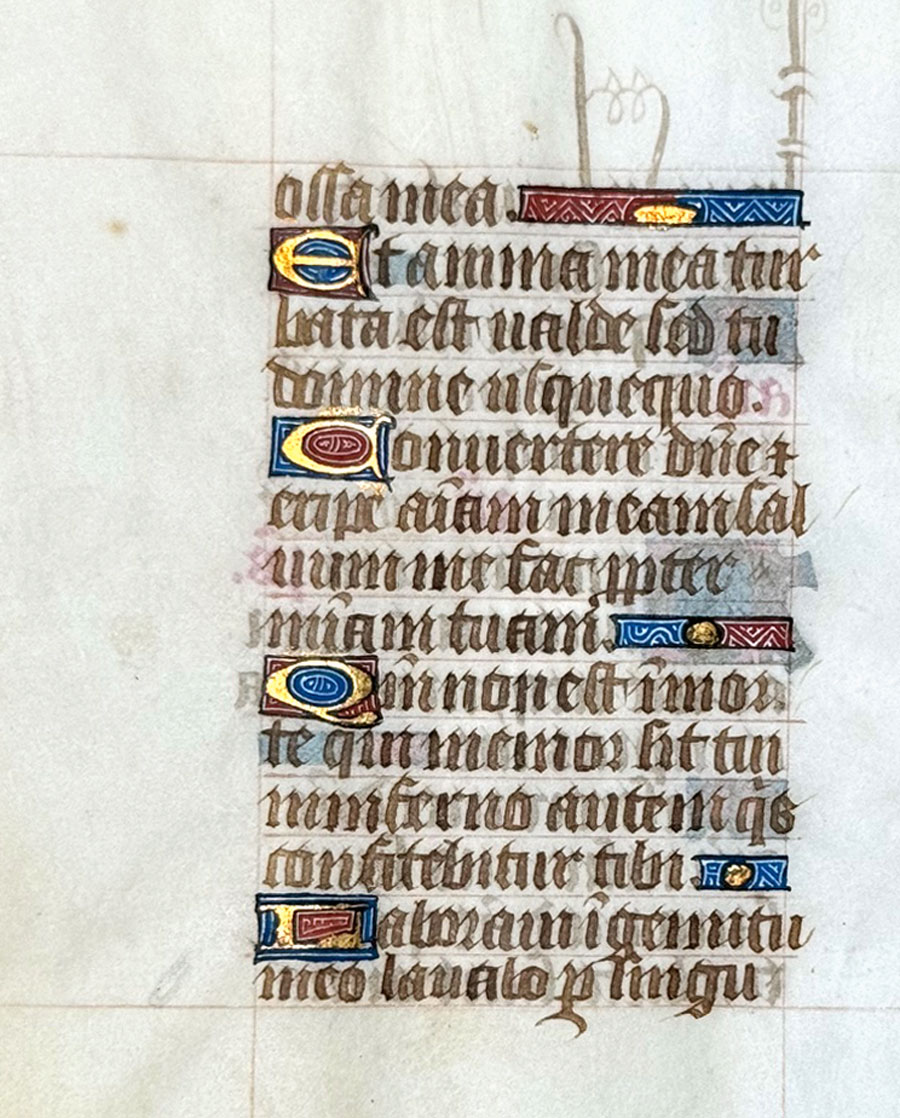 ossa mea.
Et anima mea tur
bata est ualde sed tu
domine usquequo.
Conuertere dn̄e ⁊
eripe aīam meam sal
uum me fac ꝓpter
mīam tuam.
Qm̄ non est ī mor
te qui memor sit tui
in inferno autem q̄s
confitebitur tibi.
Laboraui ī gemitu
meo lauabo ꝑ singu